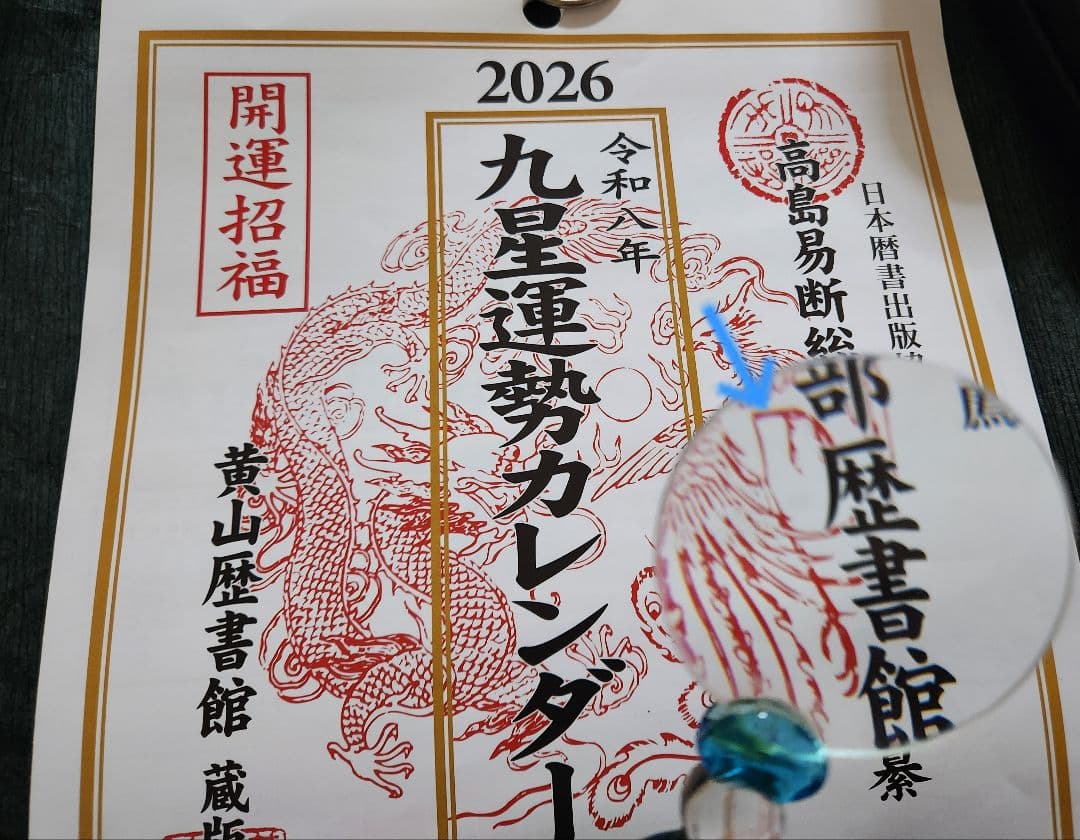 2026
日本暦書出版
高島易断総部歴書館
令和八年
九星運勢カレンダー
開運招福
黄山歴書館 蔵版